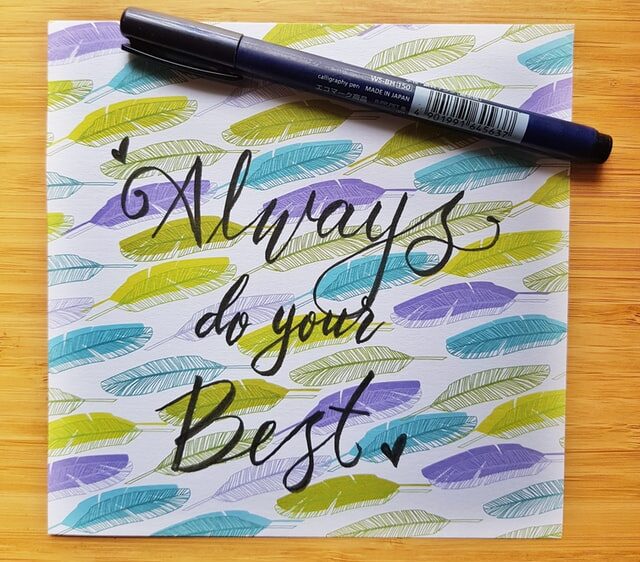 WS-BH 150
calligraphy pen MADE IN JAPAN
エコマーク商品
4 901991 645637
Always
do your
Best